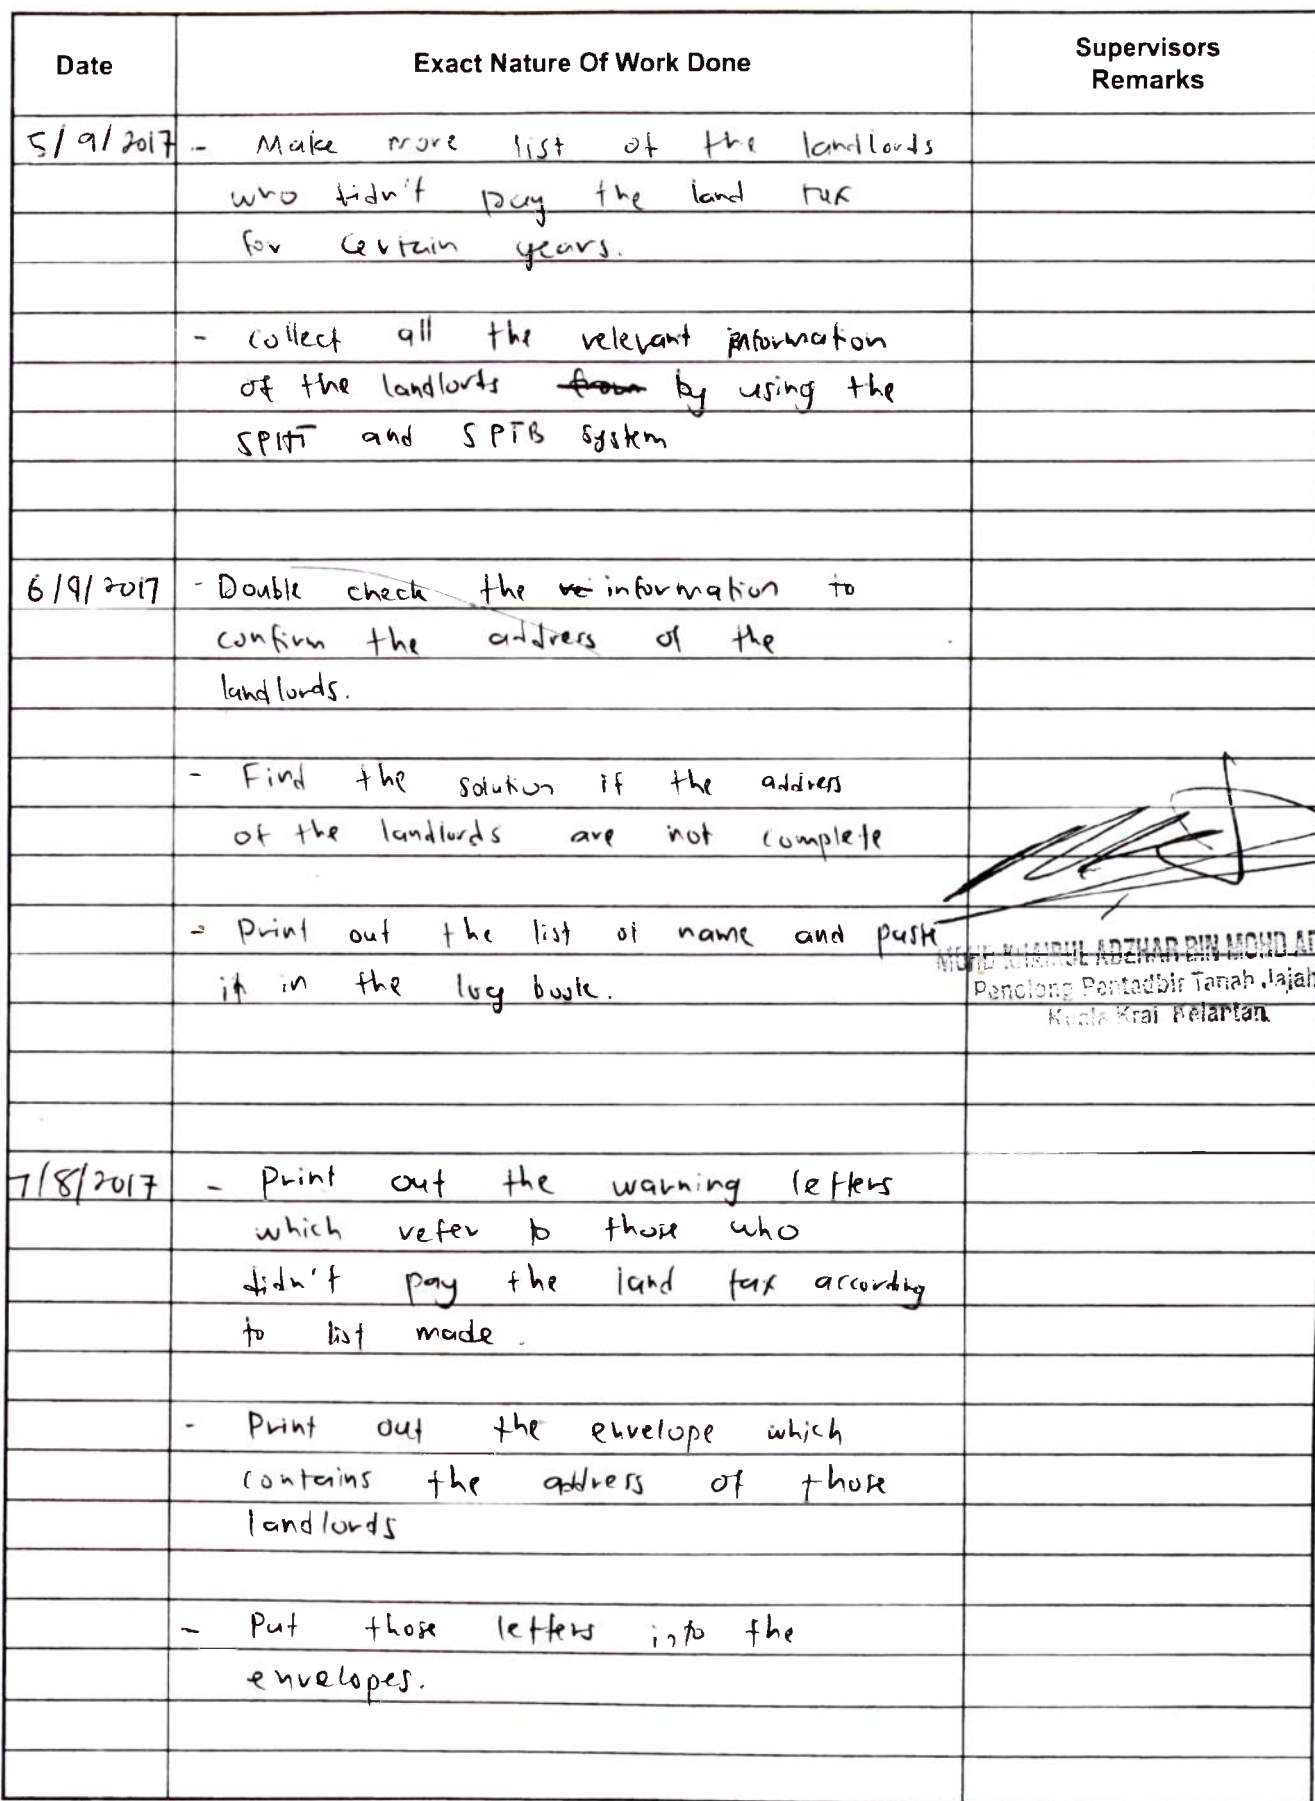 Date Exact Nature Of Work Done Supervisors
Remarks
5/9/2017 - Make more list of the landlords
who didn't pay the land tax
for certain years.
- Collect all the relevant information
of the landlords from by using the
SPHT and SPTB system
6/9/2017 - Double check the re information to
confirm the address of the
landlords.
- Find the solution if the address
of the landlords are not complete
- Print out the list of name and paste
it in the log book.
MOHD KHAIRUL ADZHAR BIN MOHD
Penolong Pentadbir Tanah Jajah
Kuala Krai Kelantan.
7/8/2017 - Print out the warning letters
which refer to those who
didn't pay the land tax according
to list made.
- Print out the envelope which
contains the address of those
landlords
- Put those letters into the
envelopes.